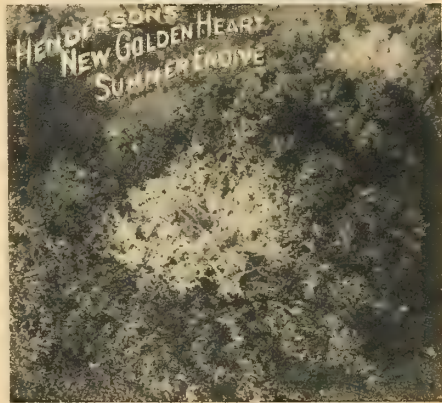 HENDERSON'S
NEW GOLDEN HEART
SUMMER ENDIVE